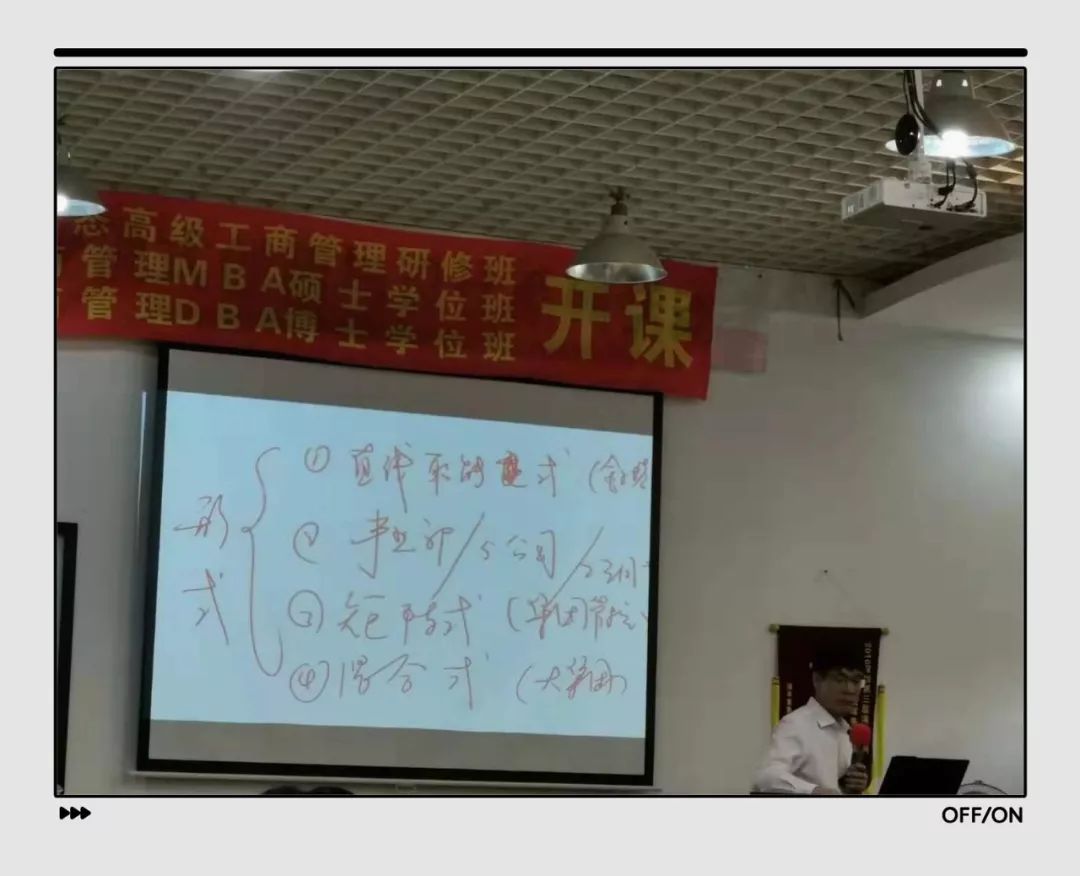 高级工商管理研修班
管理MBA硕士学位班
管理DBA博士学位班
开课
形式
① 直线职能式
② 事业部/分公司/
③ 矩阵式 (集团管控
④ 混合式 (大集团)
OFF/ON